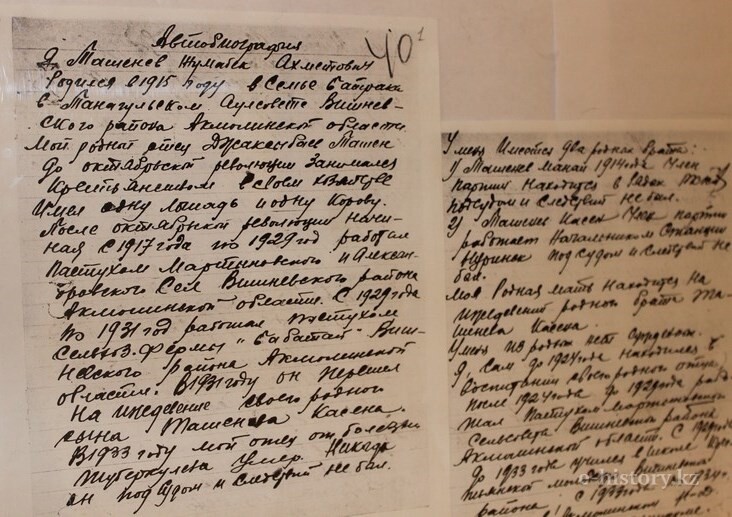 Автобиография
40 1
Я, Ташенев Жумабек Ахметович
Родился в 1915 году в семье батрака
в Танагульском Аулсовете Вишнев-
ского района Акмолинской области.
Мой родной отец Джакасыбаев Ташен
До октябрьской революции занимался
крестьянством в своем
имел одну лошадь и одну корову.
После октябрьской революции начи-
ная с 1917 года по 1929 год работал
Пастухом Мартыновского и Алексан-
дровского сел Вишневского района
Акмолинской области. С 1929 года
по 1931 год работал пастухом
Сельхоз. фермы "Бабатай" Виш-
невского района Акмолинской
области. В 1931 году он перешел
на иждевение своего родного
сына Ташенева Касена.
В 1933 году мой отец от болезни
туберкулеза умер. Никогда
он под судом и следствий не был.
У меня имеются два родных брата:
1) Ташенев Манай 1914 года член
партии находится в рядах
под судом и следствий не был.
2) Ташенев Касен член партии
работает Начальником станции
под судом и следствий не
был.
Моя родная мать находится на
иждевений родного брата Та-
шенева Касена.
У меня из родни нет
Я, сам до 1924 года находился в
воспитании своего родного отца,
после 1924 года до 1929 года рабо-
тал пастухом Мартыновского
сельсовета Вишневского района
Акмолинской области. С 1929 года
до 1933 года учился в школе
Вишневского
района. С 1933 года 1934
Акмолинском
e-history.kz